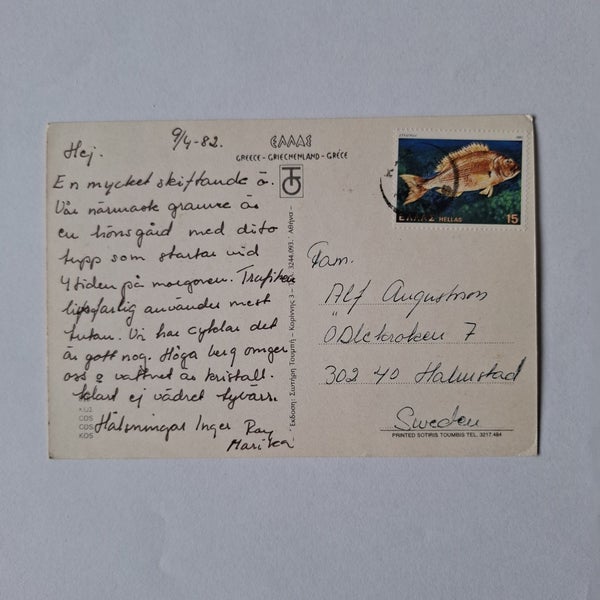 9/4-82.
Hej.
En mycket skiftande ö.
Vår närmaste granne är
en hönsgård med dito
tupp som startar vid
4 tiden på morgonen. Trafiken
livsfarlig använder mest
tutan. Vi har cyklar det
är gott nog. Höga berg omger
oss o vattnet är kristall.
klart ej vädret tyvärr.
Hälsningar Inger Roy
Marika
ΚΩΣ
COS
COS
KOS
ΕΛΛΑΣ
GREECE - GRIECHENLAND - GRÈCE
Έκδοση: Σωτήρη Τουμπή - Κορίννης 3 - 3244.093. Αθήνα -
ΕΛΛΑΣ HELLAS 15
Fam.
Alf Augustsson
Odlekroken 7
302 40 Halmstad
Sweden
PRINTED SOTIRIS TOUMBIS TEL. 3217.484